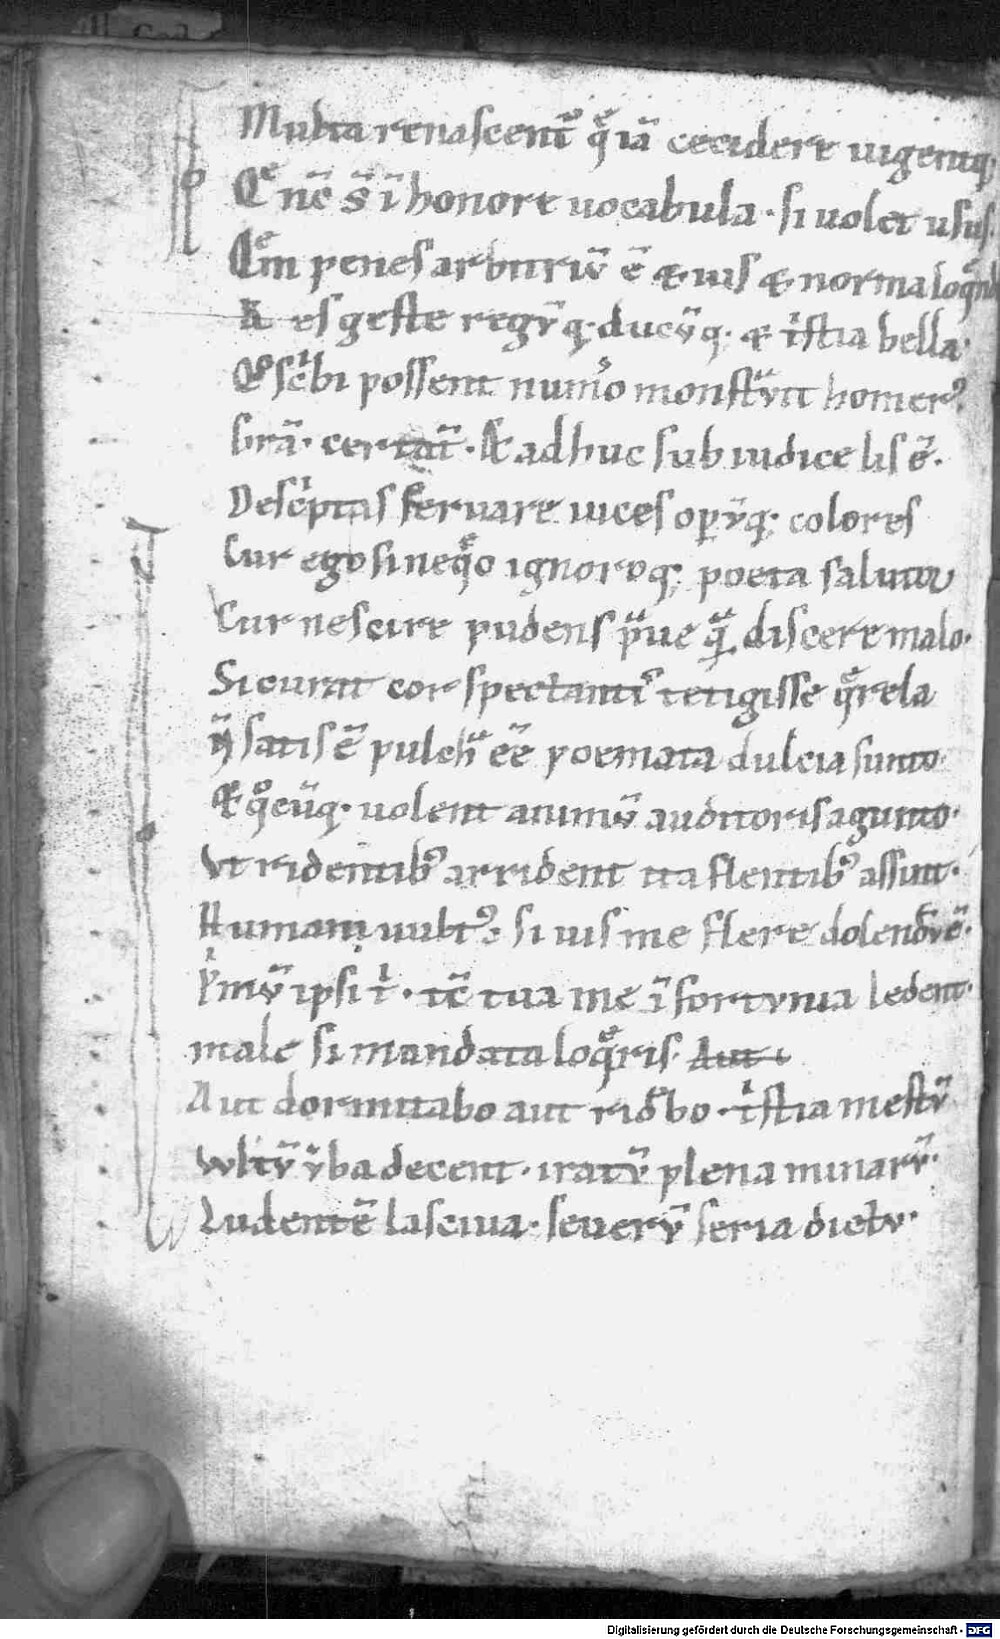 Multa renascent᷑ qͤ iā cecidere uigentq;
Qͤ nc̄ s̄ ī honore uocabula · si uolet usus.
Qͤm penes arbitriū ē & ius & norma loqͤnd
Res geste regūq; ducūq; & tͥstia bella·
Qͦ scͥbi possent num̾o monstͣuit homer᷒
lrā· certāt᷑ · & adhuc sub iudice lis ē·
Descͥptas seruare uices opūq; colores
Cur ego si neqͤo ignoroq; poeta salutor
Cur nescire pudens pͣue qͣ̄ discere malo·
Si curat cor spectantis tetigisse qͤrela
N̄ satis ē pulchͣ eē poemata dulcia sunto
& qͦcūq; uolent animū auditoris agunto·
Vt ridentib᷒ arrident ita flentib᷒ assunt·
Humani uult᷒; si uis me flere dolendū ē·
Pͥmū ipsi tͥ · tc̄ tua me īfortunia ledent·
male si mandata loqͤris· Aut
Aut dormitabo aut ridͤbo · tͥstia mestū
Wltū ūba decent · iratū plena minarū·
Ludentē lasciua· seuerū seria dictu·
Digitalisierung gefördert durch die Deutsche Forschungsgemeinschaft - DFG